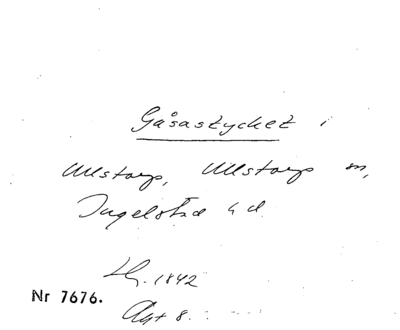 Gåsastycket i
Ullstorp, Ullstorps sn,
Ingelstad hd.
Lg. 1842
Nr 7676.
Akt 8.